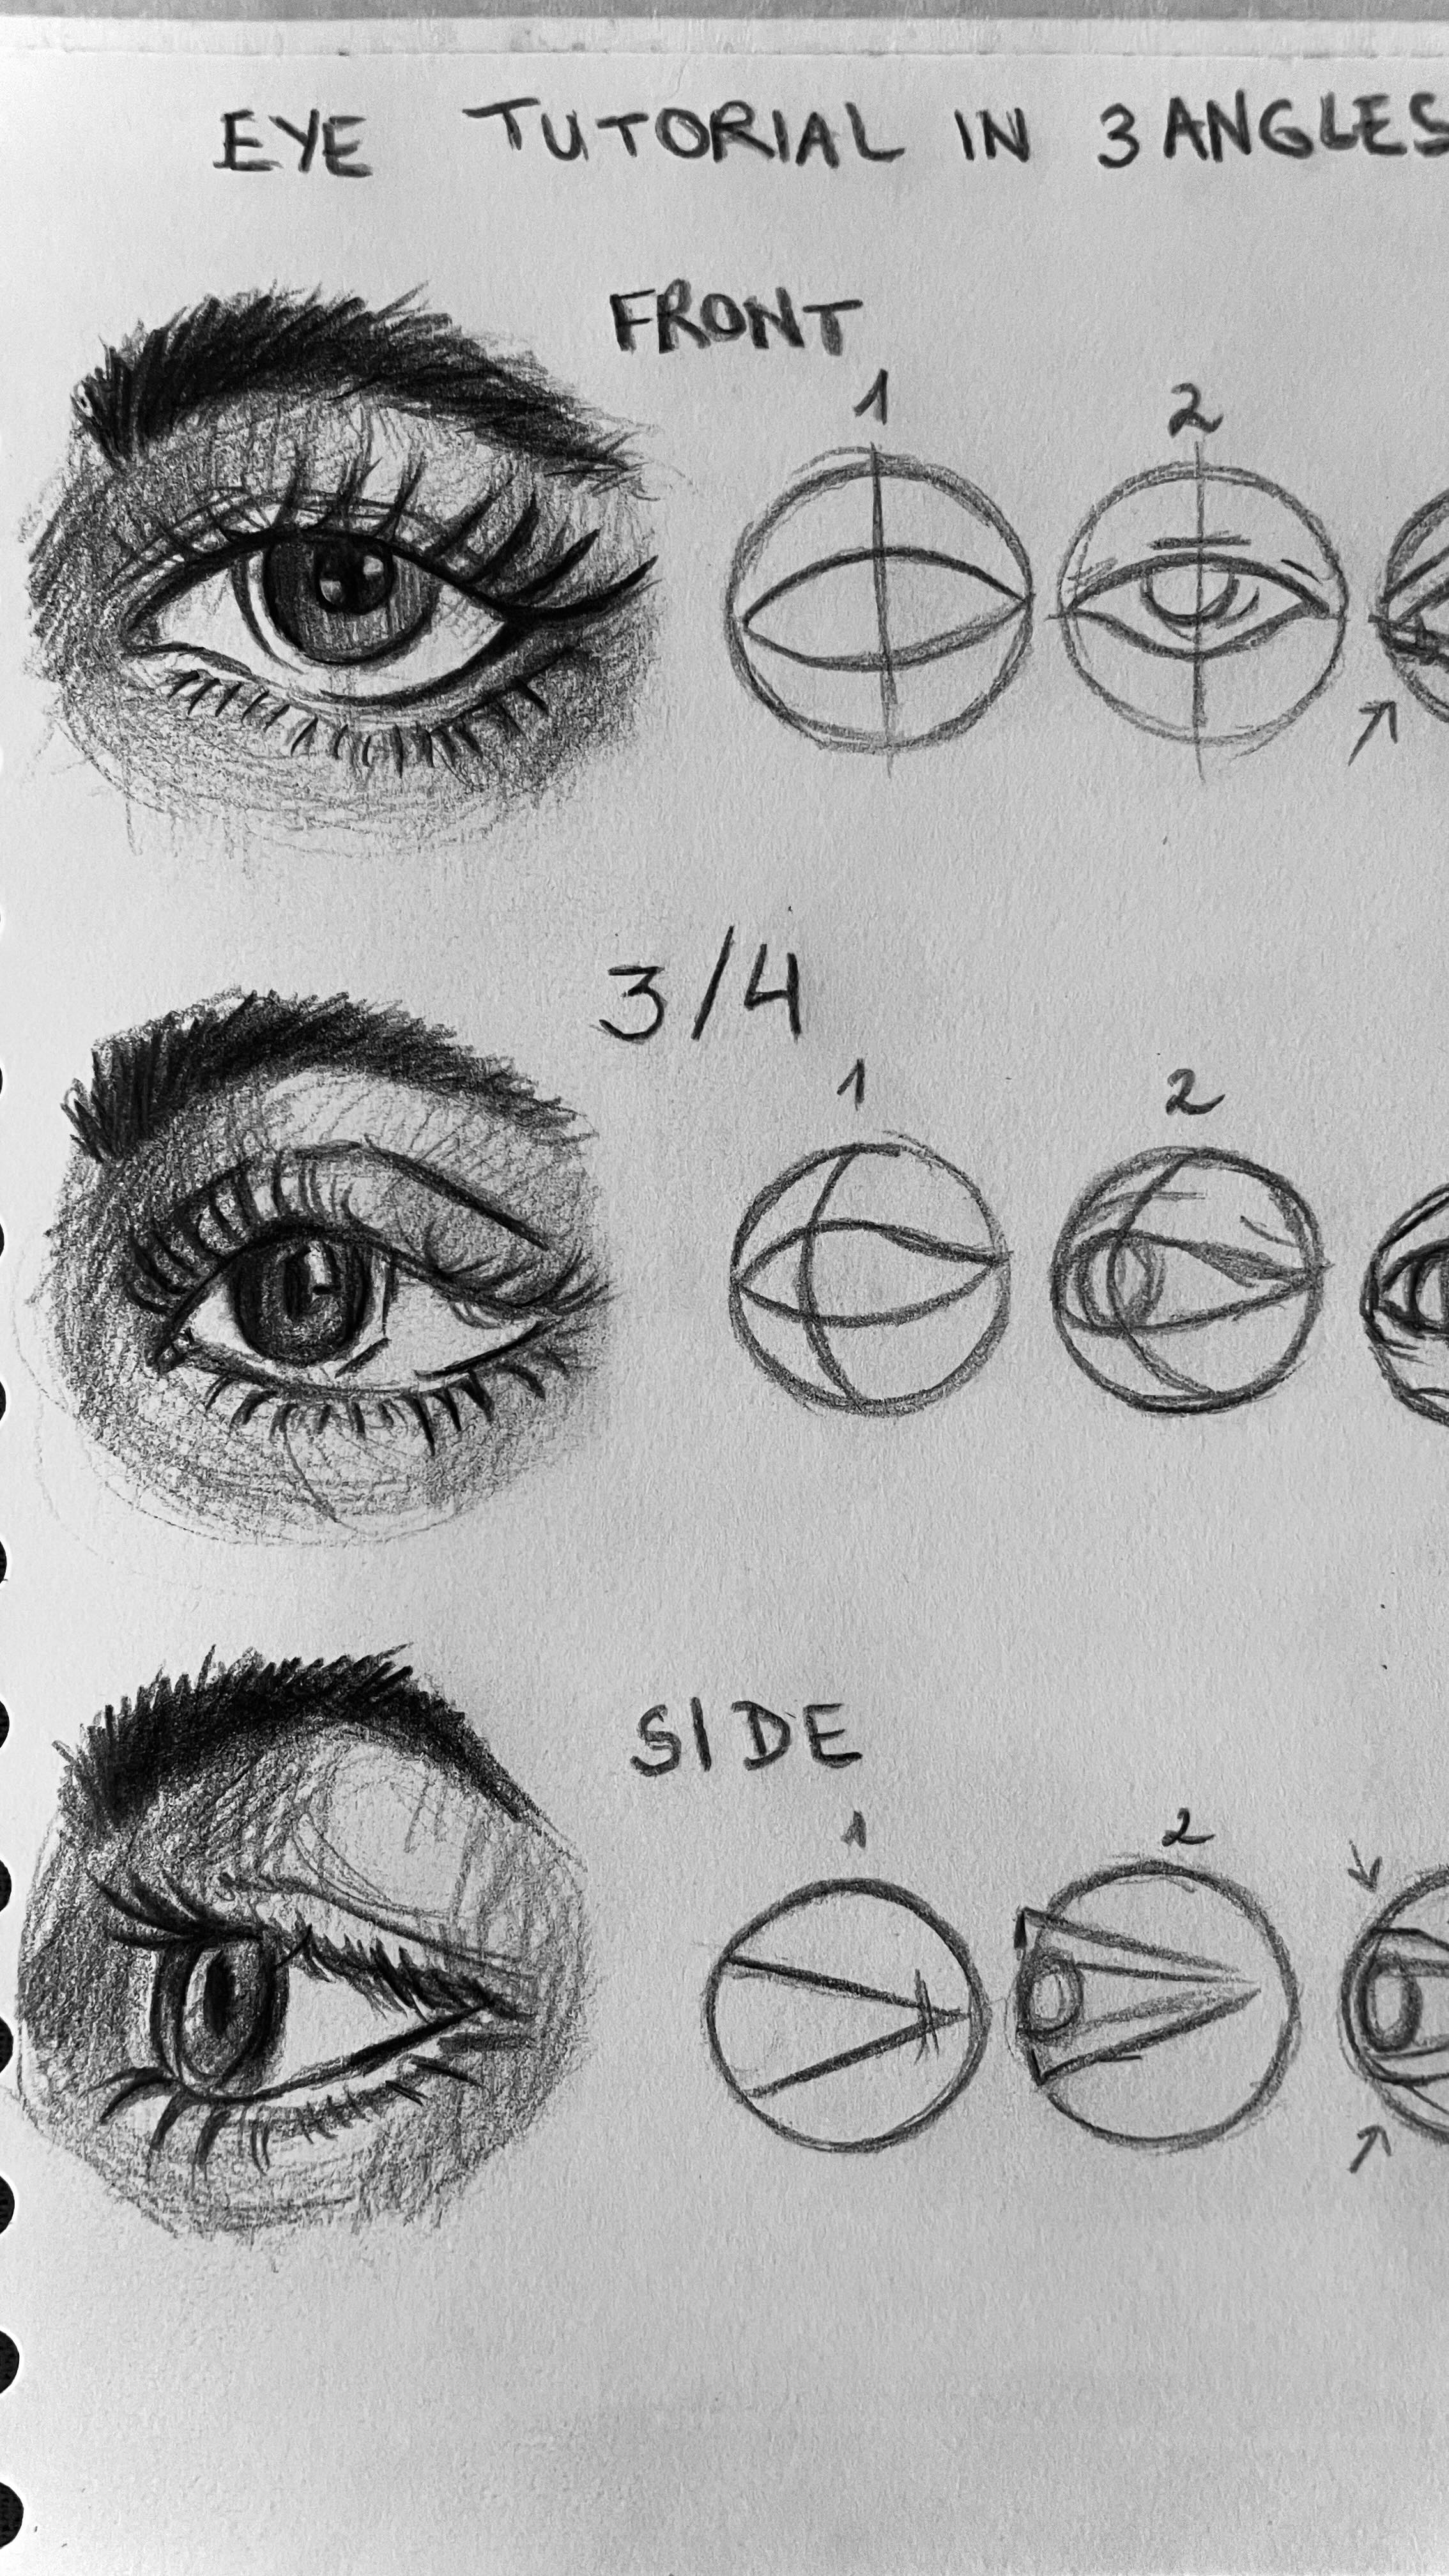 EYE TUTORIAL IN 3 ANGLES
FRONT
1 2
3/4
1 2
SIDE
1 2